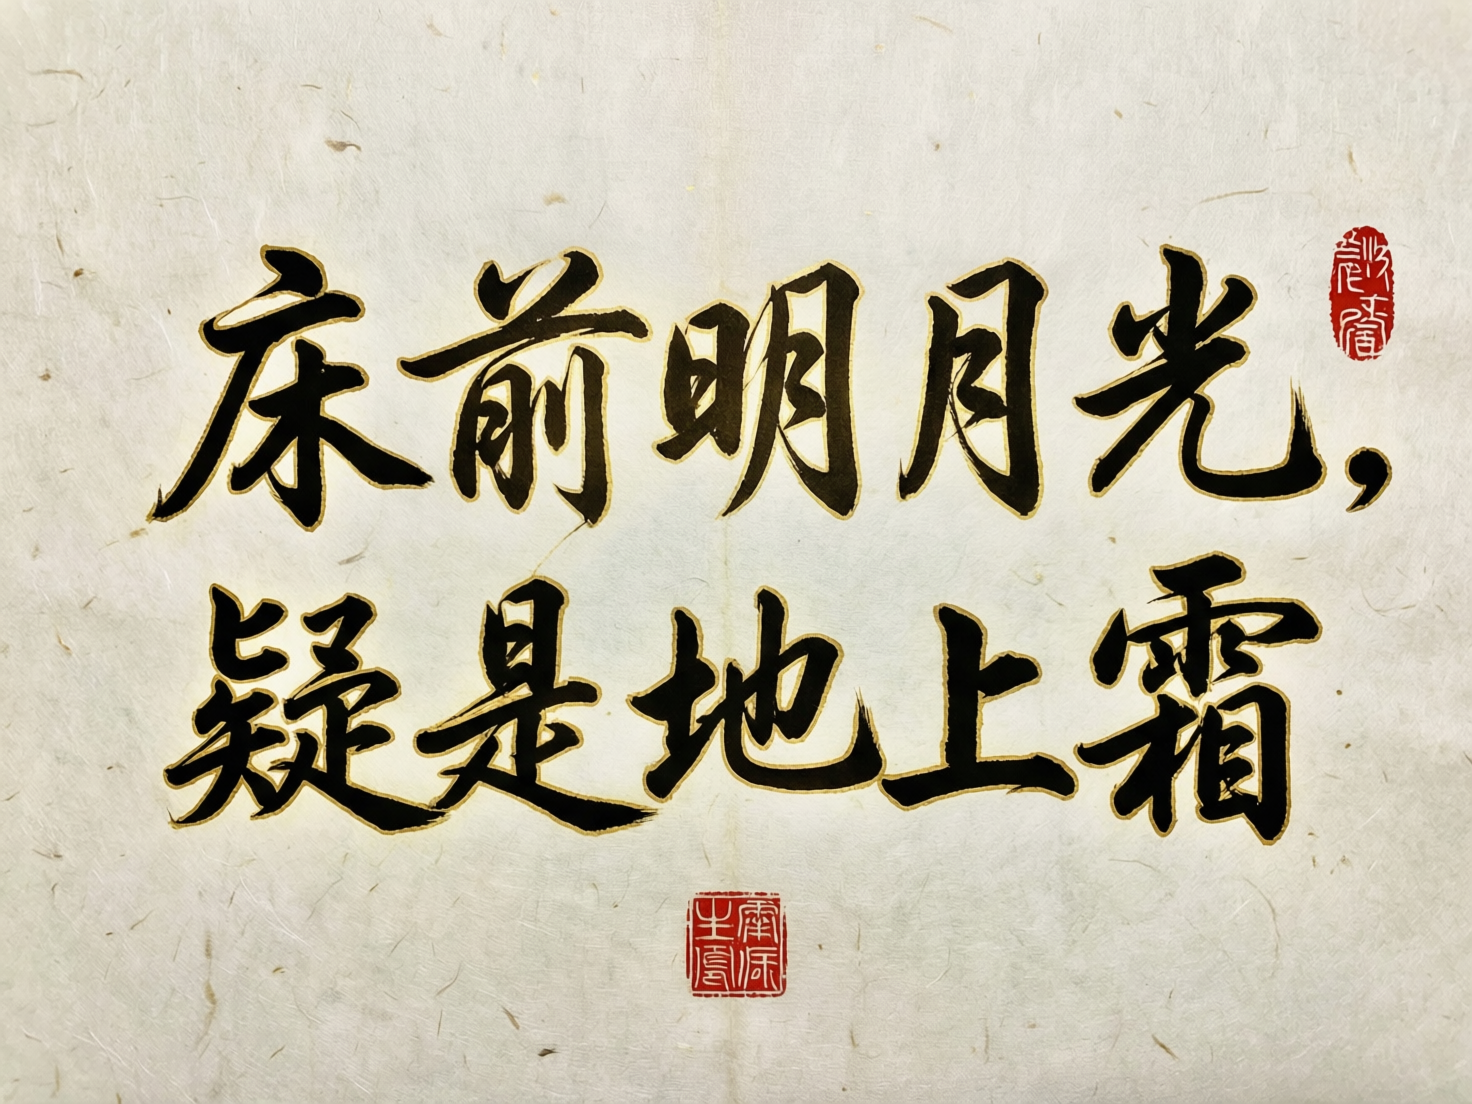 床前明月光,
疑是地上霜